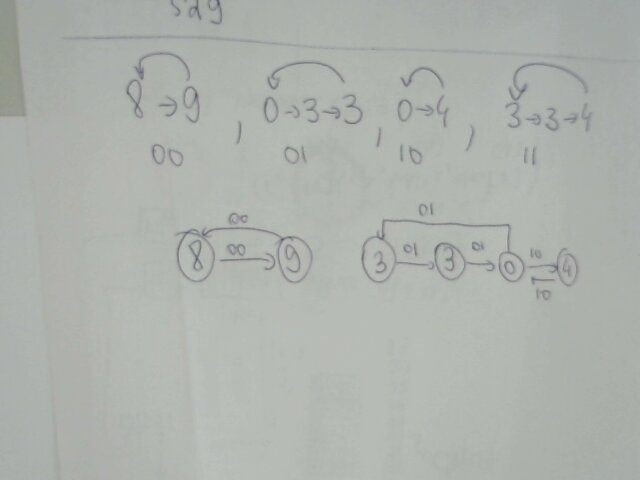 529
8→9, 0→3→3, 0→4, 3→3→4
00 01 10 11
00 01
8 00 9 3 01 3 01 0 10 4
10